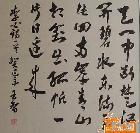 天门中断楚江
开碧水东流至
此回两岸青山
相对出孤帆一
片日边来
李白诗